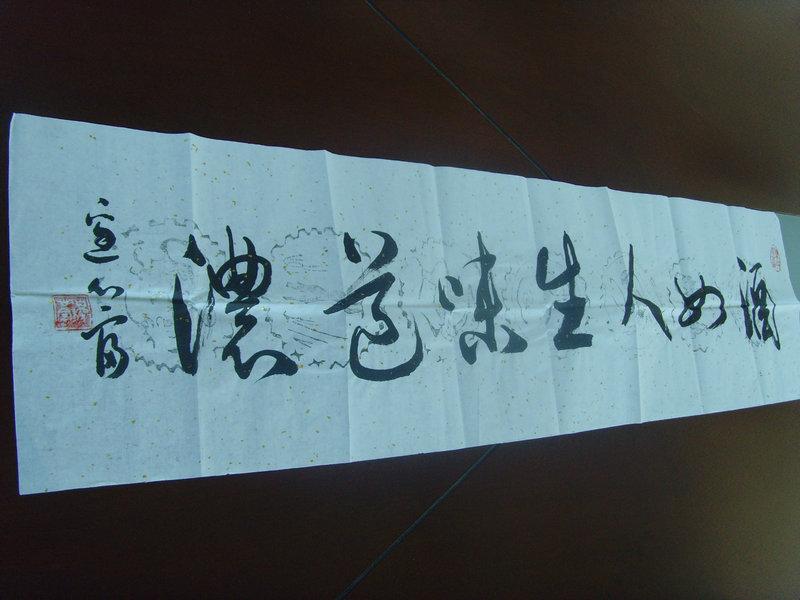 酒如人生味道濃